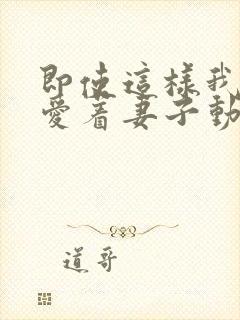 即使這樣我
愛着妻子動
道哥